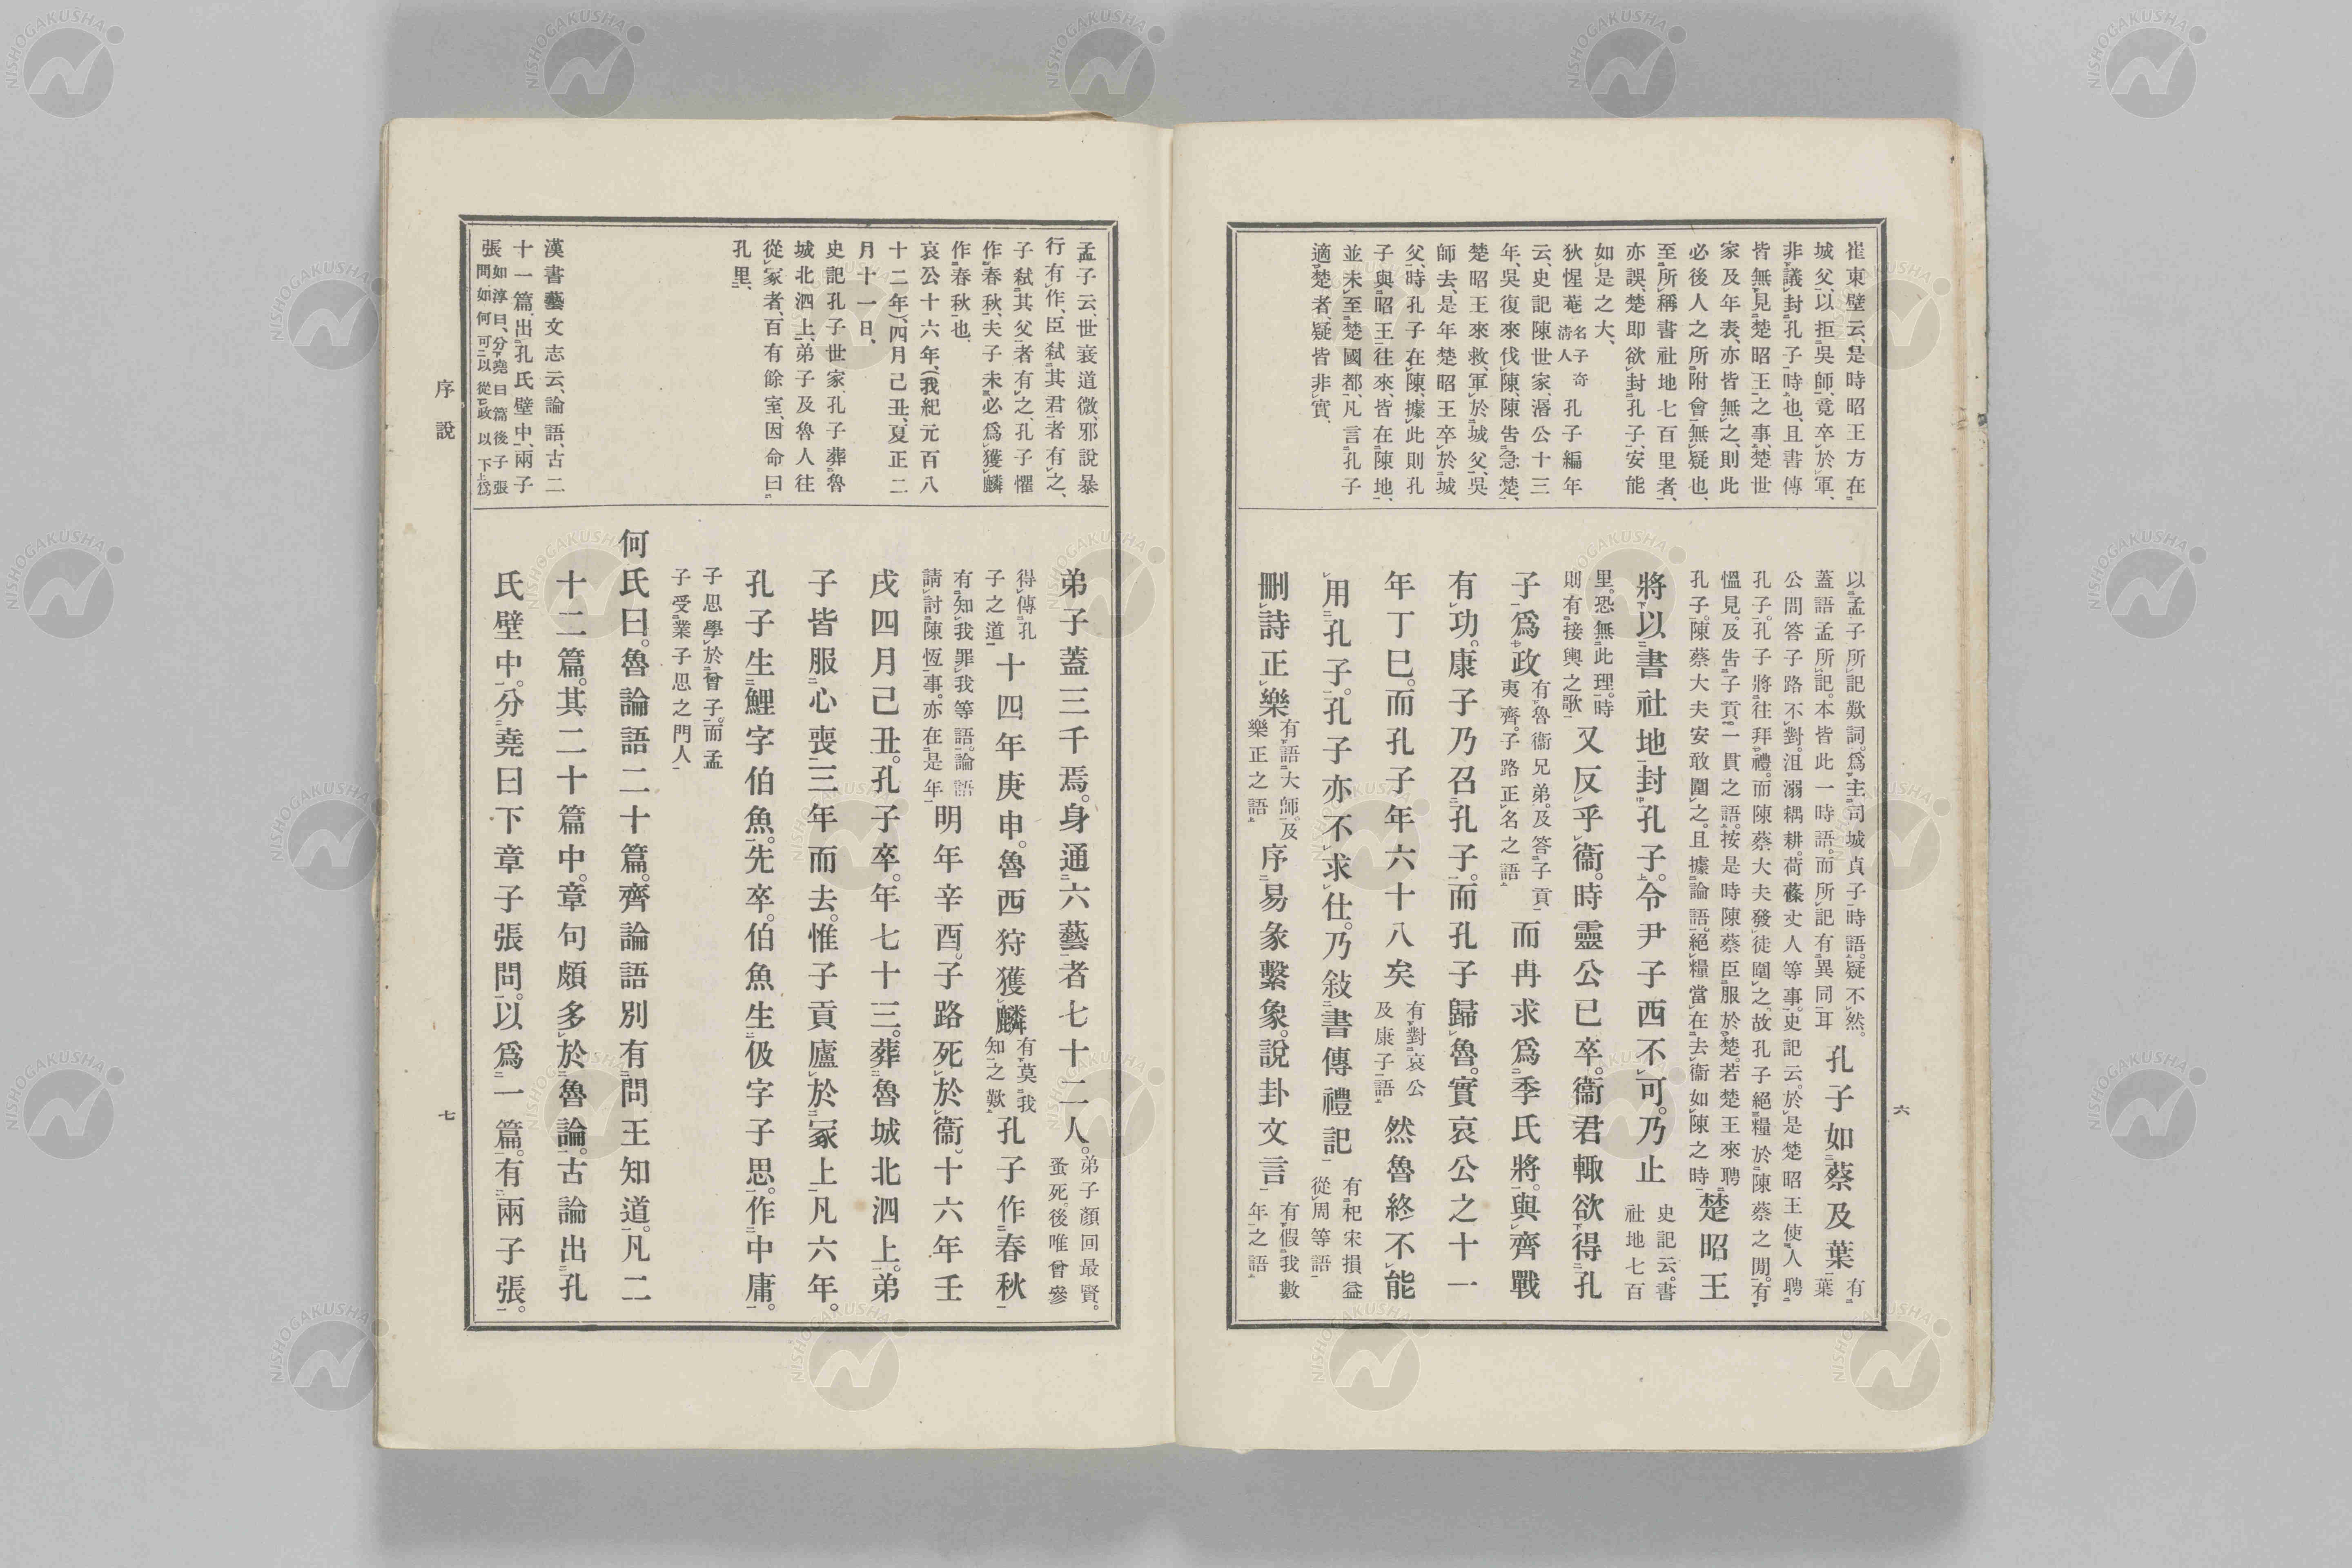 崔東壁云、是時昭王方在
城父、以拒吳師、竟卒於軍、
非議封孔子時也、且書傳
皆無見楚昭王之事、楚世
家及年表、亦皆無之、則此
必後人之所附會無疑也、
至所稱書社地七百里者、
亦誤、楚即欲封孔子、安能
如是之大、
狄惺菴名子奇清人孔子編年
云、史記陳世家、湣公十三
年、吳復來伐陳、陳告急楚、
楚昭王來救、軍於城父、吳
師去、是年楚昭王卒於城
父、時孔子在陳、據此則孔
子與昭王往來、皆在陳地、
並未至楚國都、凡言孔子
適楚者、疑皆非實、
以孟子所記歎詞。爲主司城貞子時語。疑不然。
蓋語孟所記。本皆此一時語。而所記有異同耳
孔子如蔡及葉
有葉
公問答子路不對。沮溺耦耕。荷蓧丈人等事。史記云。於是楚昭王使人聘
孔子。孔子將往拜禮。而陳蔡大夫發徒圍之。故孔子絕糧於陳蔡之閒。有
慍見。及告子貢一貫之語。按是時陳蔡臣服於楚。若楚王來聘
孔子。陳蔡大夫安敢圍之。且據論語。絕糧當在去衞如陳之時
楚昭王
將以書社地封孔子。令尹子西不可。乃止
史記云。書
社地七百
里。恐無此理。時
則有接輿之歌
又反乎衞。時靈公已卒。衞君輒欲得孔
子爲政
有魯衞兄弟。及答子貢
夷齊。子路正名之語
而冉求爲季氏將。與齊戰
有功。康子乃召孔子。而孔子歸魯。實哀公之十一
年丁巳。而孔子年六十八矣
有對哀公
及康子語
然魯終不能
用孔子。孔子亦不求仕。乃敍書傳禮記
有杞宋損益
從周等語
刪詩正樂
有語大師。及
樂正之語
序易彖繫象。說卦文言
有假我數
年之語
六
孟子云、世衰道微、邪說暴
行有作、臣弒其君者有之、
子弒其父者有之、孔子懼
作春秋、夫子未必爲獲麟
作春秋也、
哀公十六年、(我紀元百八
十二年)、四月己丑、夏正二
月十一日、
史記孔子世家、孔子葬魯
城北泗上、弟子及魯人往
從冢者、百有餘室、因命曰
孔里、
漢書藝文志云、論語、古二
十一篇、出孔氏壁中、兩子
張如淳曰、分堯曰篇後子張問如何可以從政以下爲
弟子蓋三千焉。身通六藝者七十二人。
弟子顏回最賢。
蚤死。後唯曾參
得傳孔
子之道
十四年庚申。魯西狩獲麟
有莫我
知之歎
孔子作春秋
有知我罪我等語。論語
請討陳恆事。亦在是年
明年辛酉。子路死於衞。十六年壬
戌四月己丑。孔子卒。年七十三。葬魯城北泗上。弟
子皆服心喪三年而去。惟子貢廬於冢上凡六年。
孔子生鯉字伯魚。先卒。伯魚生伋字子思。作中庸。
子思學於曾子。而孟
子受業子思之門人
何氏曰。魯論語二十篇。齊論語別有問王知道。凡二
十二篇。其二十篇中。章句頗多於魯論。古論出孔
氏壁中。分堯曰下章子張問。以爲一篇。有兩子張。
序說
七